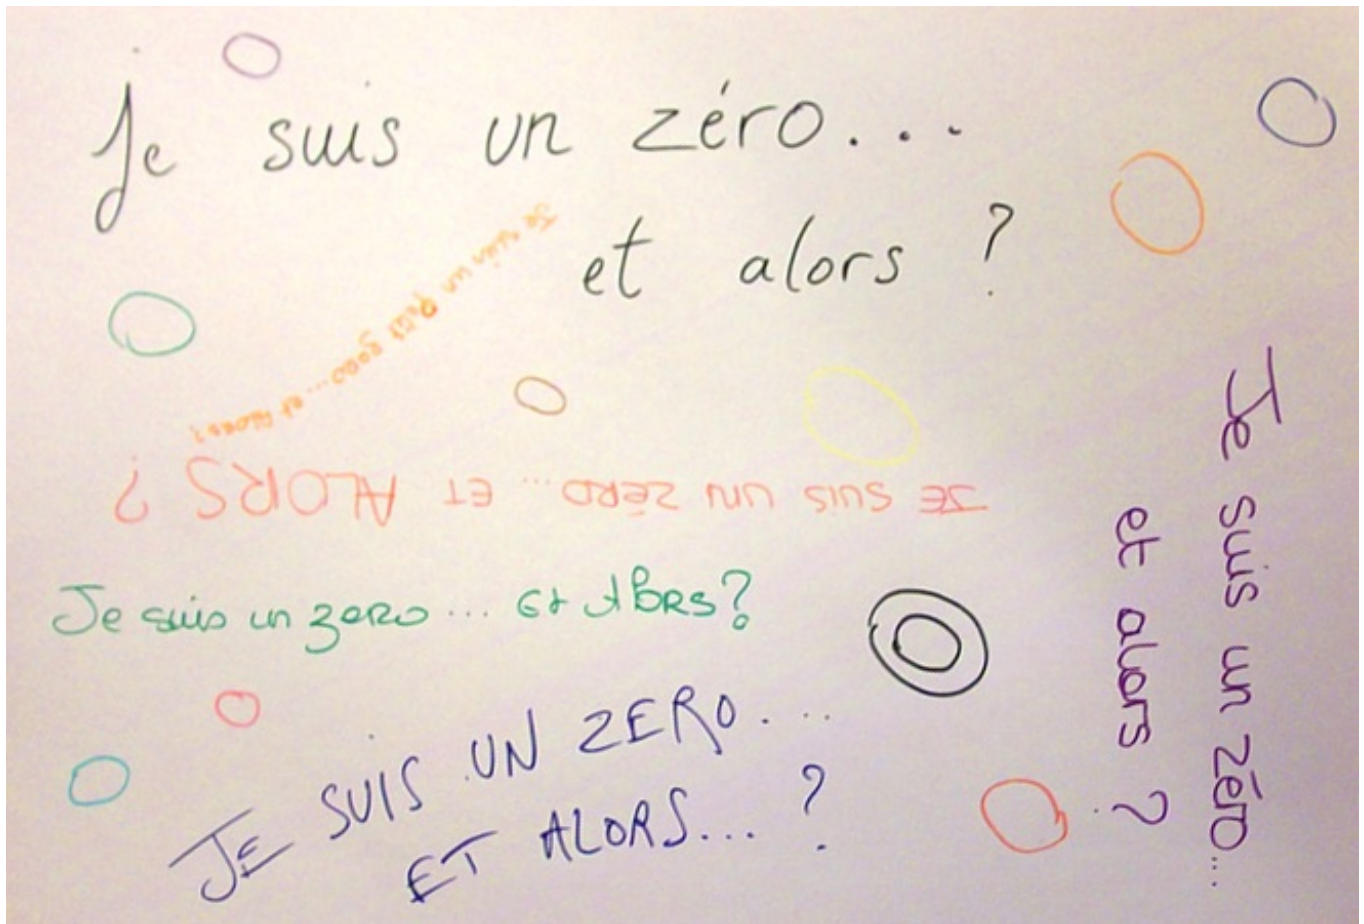 Je suis un zéro...
et alors ?
Je suis un Petit zero... et ALORS ?
JE SUIS UN ZÉRO... ET ALORS ?
Je suis un zero... Et AlORS ?
JE SUIS UN ZERO...
ET ALORS... ?
Je suis un zéro...
et alors ?